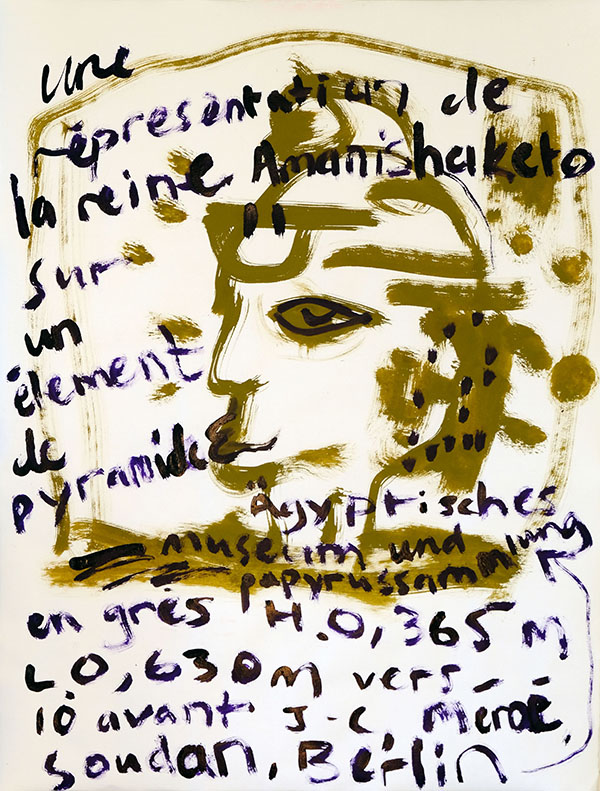 une
représentation de
la reine Amanishaketo
sur
un
élément
de
pyramide
Ägyptisches
museum und
papyrussammlung
en grès H.0,365 m
L0,630m vers -
10 avant J-C méroé
Soudan, Berlin